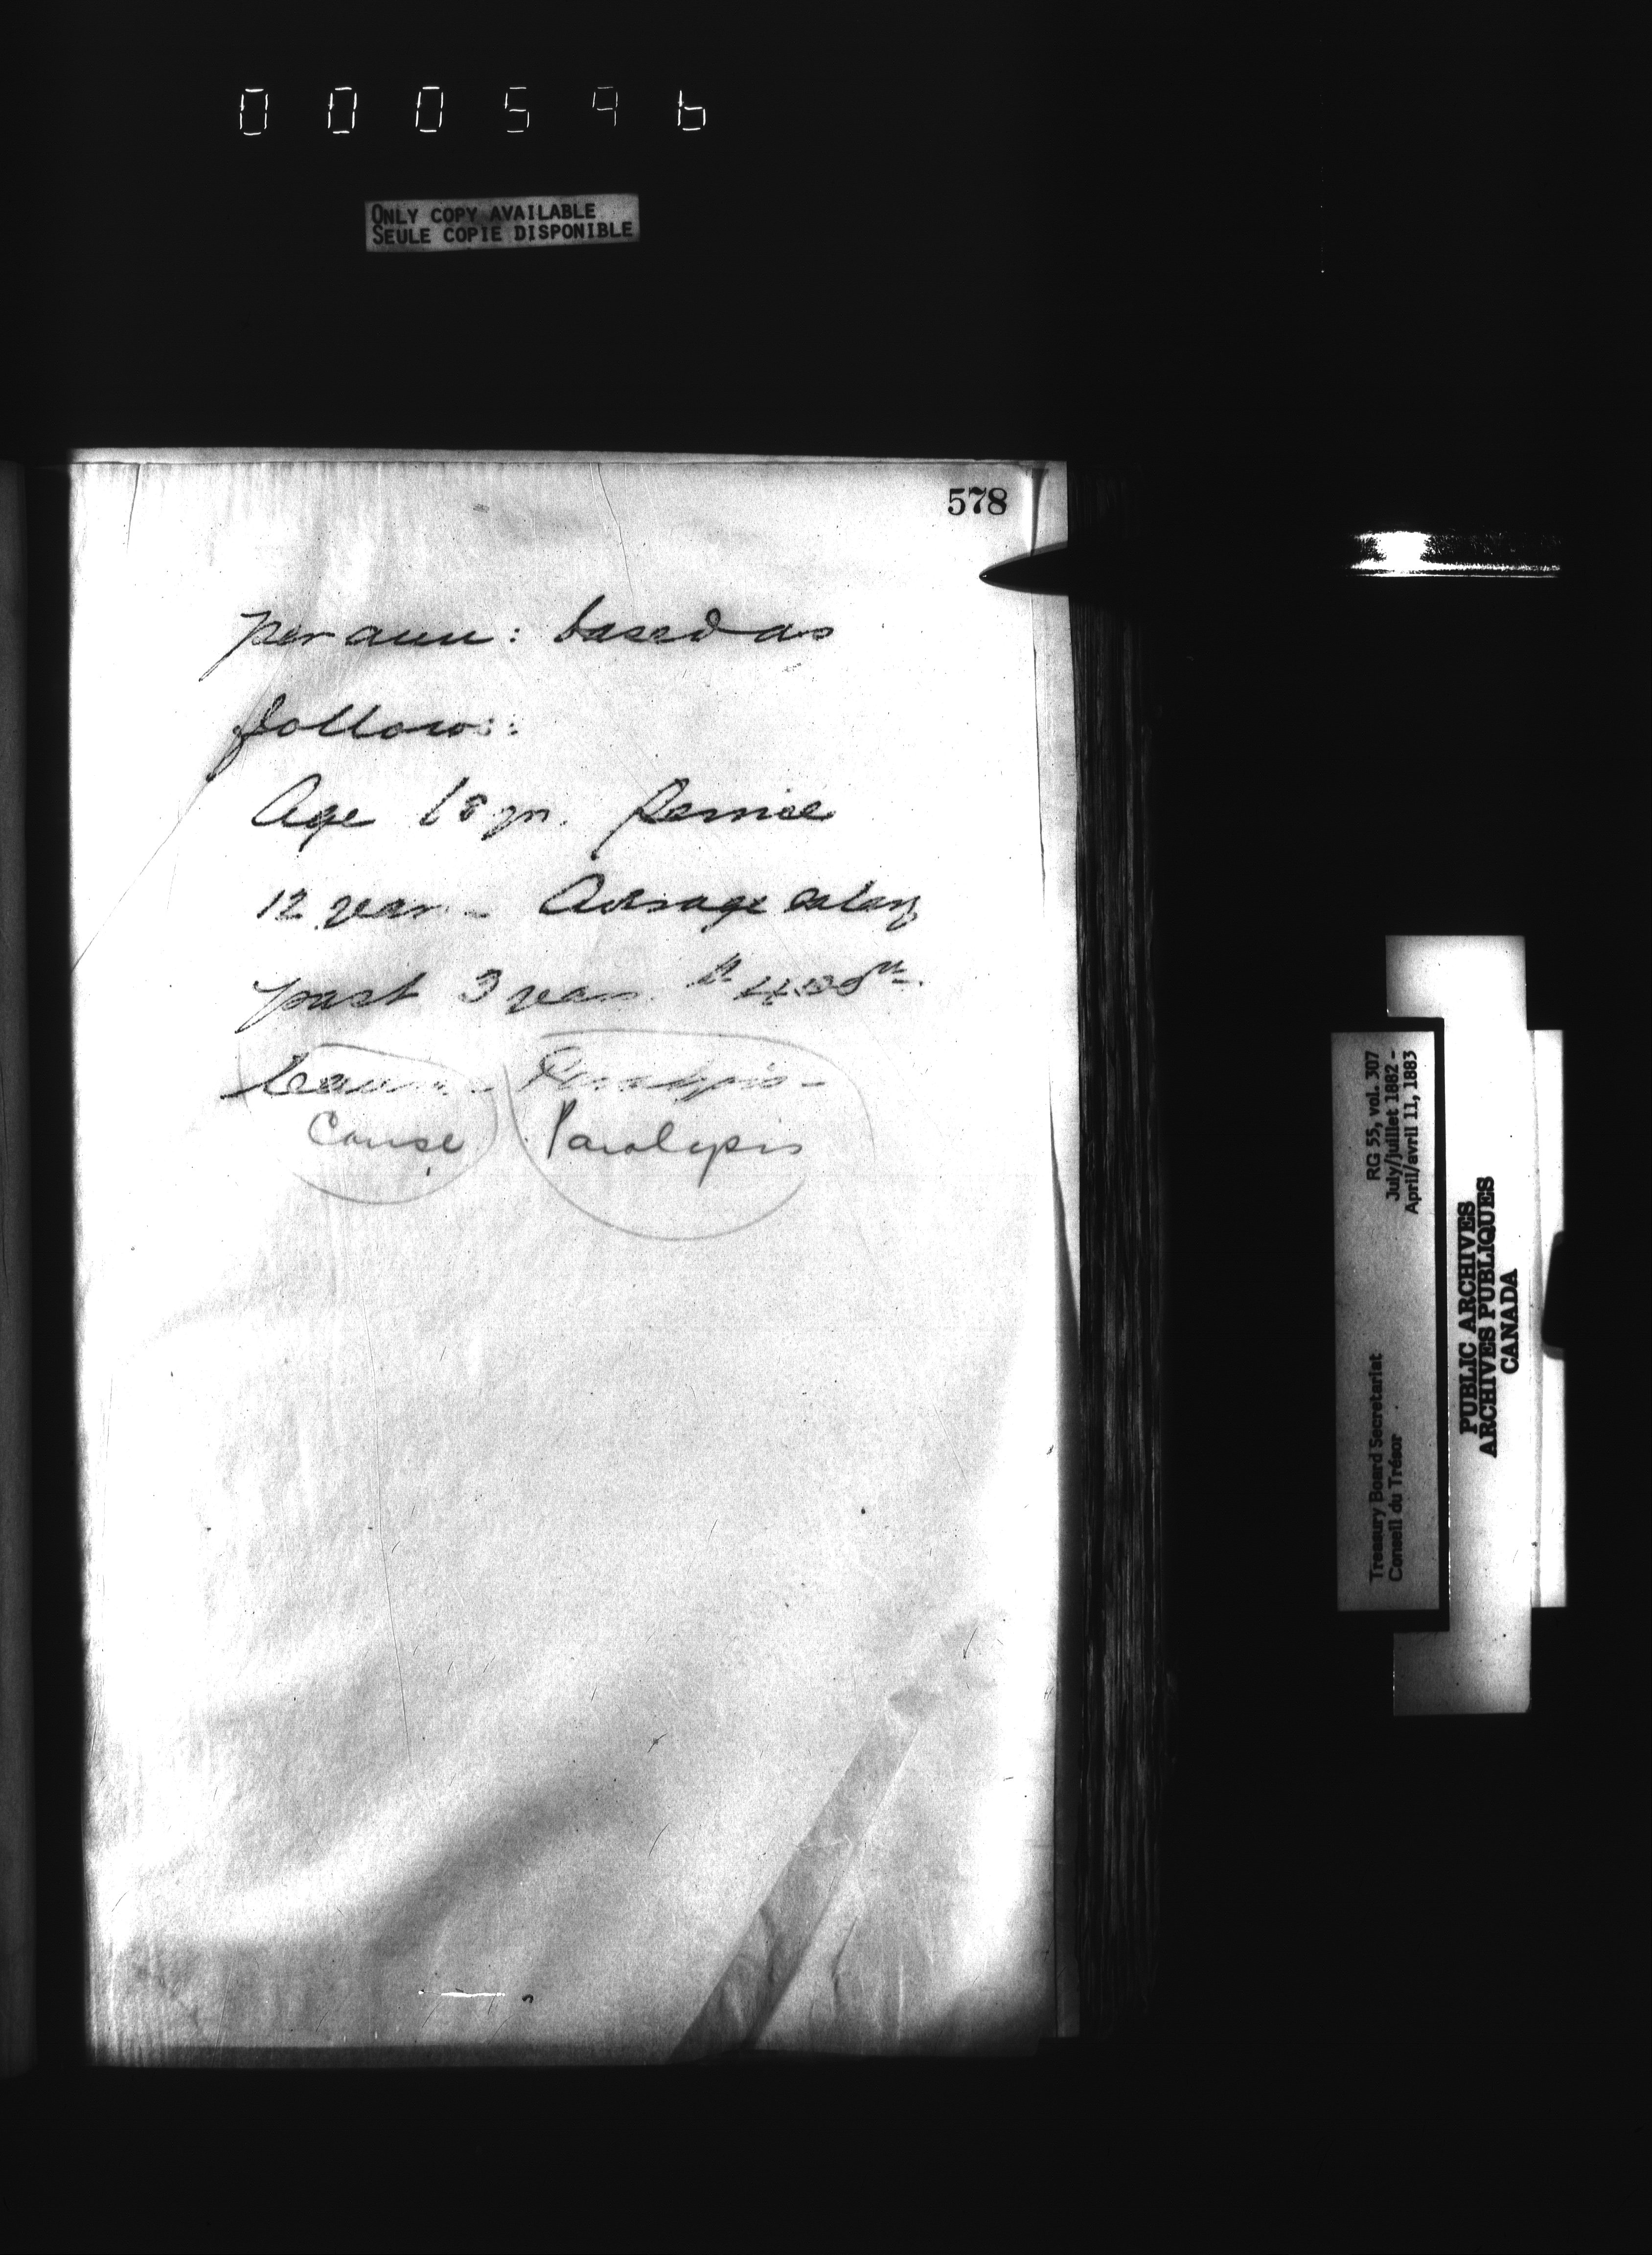 000596
ONLY COPY AVAILABLE
SEULE COPIE DISPONIBLE
578
per ann: based as
follows:
Age 68 yrs. Service
12 years - Average salary
past 3 years $
Cause - Paralysis -
Cause Paralysis
RG 55, vol. 307
July/juillet 1882 -
April/avril 11, 1883
Treasury Board Secretariat
Conseil du Trésor
PUBLIC ARCHIVES
ARCHIVES PUBLIQUES
CANADA